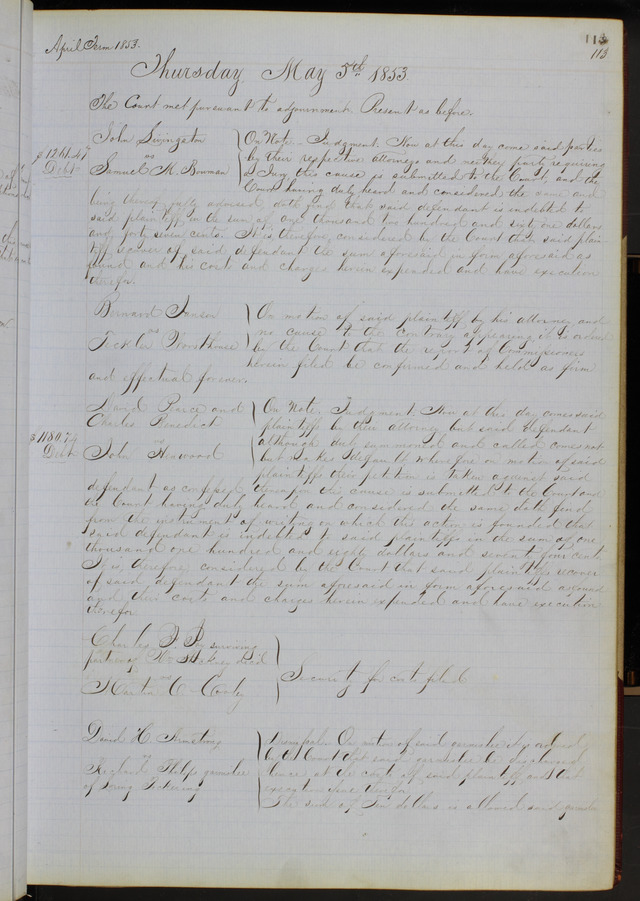 113
April Term 1853.
113
Thursday May 5th 1853
The Court met pursuant to adjournment. Present as before.
John Livingston
vs
Samuel H. Bowman
$1261.47
Debt
On Note. Judgment. Now at this day come said parties
by their respective attorneys and neither party requiring
a Jury this cause is submitted to the Court, and the
Court having duly heard and considered the same and
being thereof fully advised, doth find that said defendant is indebted to
said plaintiff in the sum of one thousand two hundred and sixty one dollars
and forty seven cents. It is therefore considered by the Court that said plain
tiff recover of said defendant the sum aforesaid in form aforesaid as
found and his costs and charges herein expended and have execution
therefor.
Bernard
vs
On motion of said plaintiff by his attorney and
no cause to the contrary appearing it is ordered
by the Court that the report of Commissioners
herein filed be confirmed and held as firm
and effectual forever.
David Pearce and
Charles Benedict
vs
John Howood
$1180.74
Debt
On Note. Judgment. Now at this day comes said
plaintiffs by their attorney but said defendant
although duly summoned and called comes not
but makes default wherefore on motion of said
plaintiffs their petition is taken against said
defendant as confessed thereupon the cause is submitted to the Court and
the Court having duly heard and considered the same doth find
from the instrument of writing on which this action is founded that
said defendant is indebted to said plaintiffs in the sum of one
thousand one hundred and eighty dollars and seventy four cents
It is, therefore considered by the Court that said plaintiffs recover
of said defendant the sum aforesaid in form aforesaid as found
and their costs and charges herein expended and have execution
therefor
Charles surviving
partner of
vs
Martin C.
Security for costs filed
David H. Armstrong
vs
Philips garnishee
of Pickering
Dismissal. On motion of said garnishee it is ordered
by the Court that said garnishee be discharged
hence at the costs of said plaintiff and that
execution issue therefor
The sum of Ten dollars is allowed said garnishee